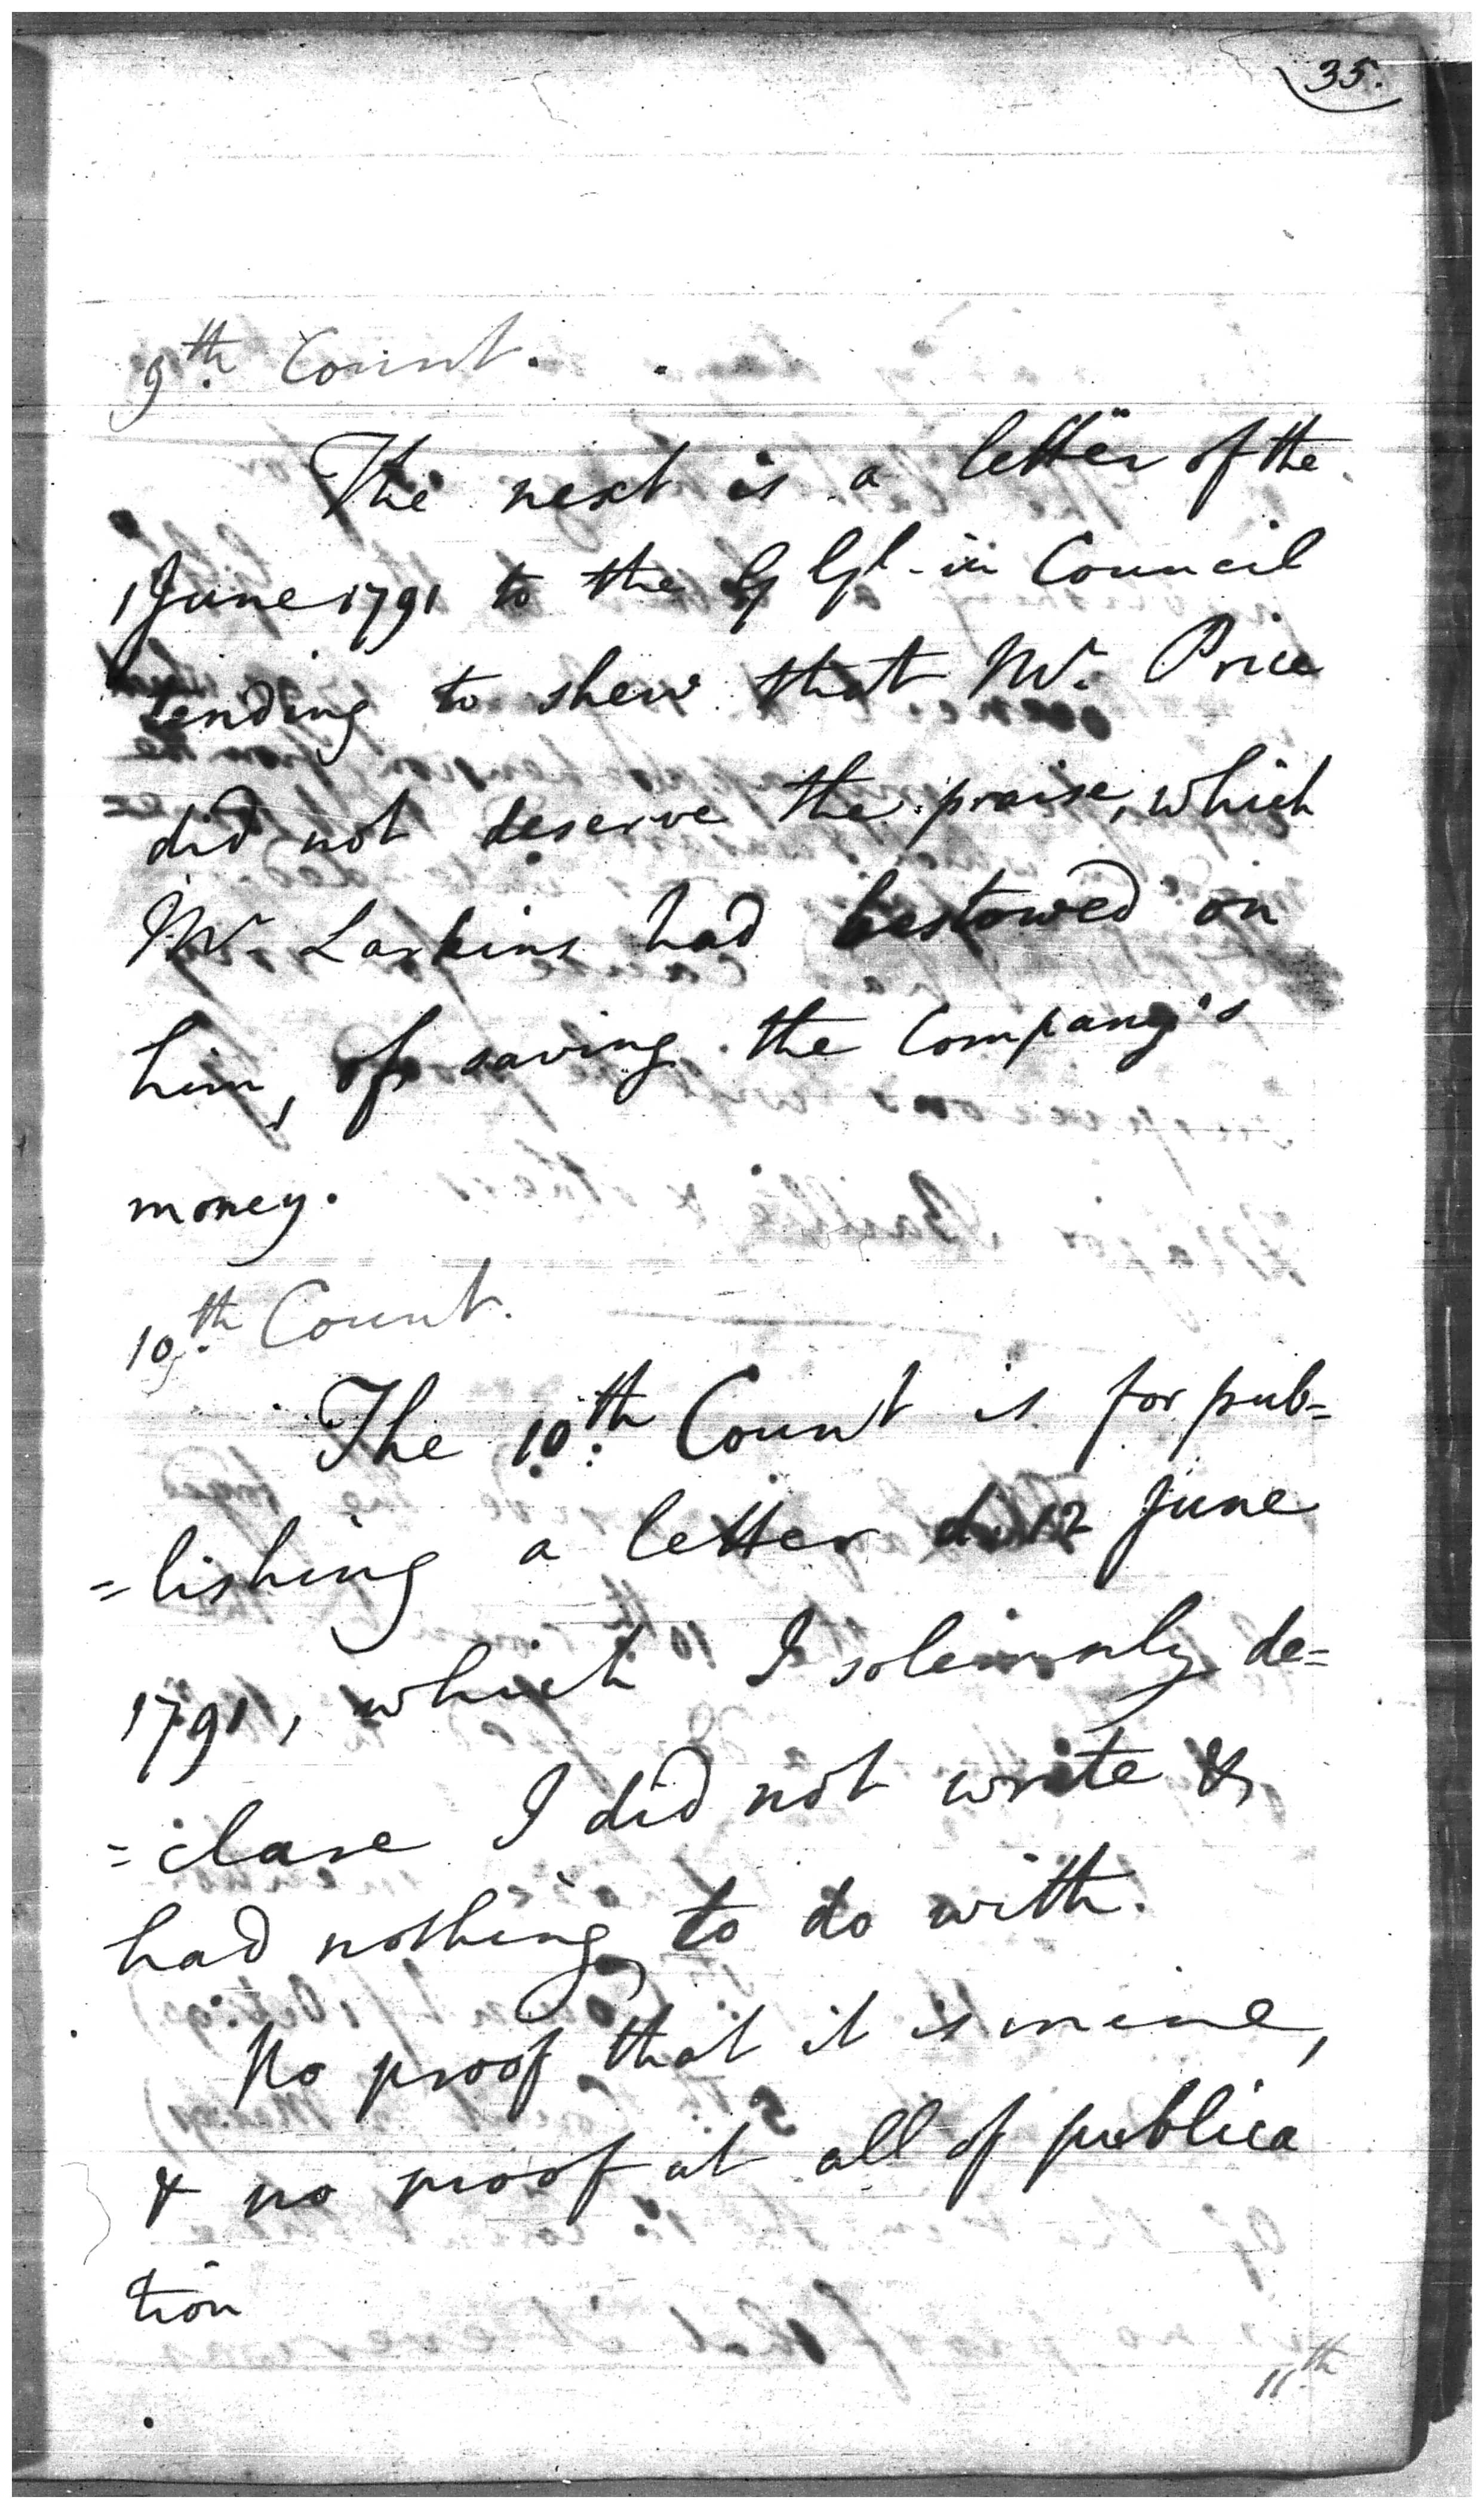 35.
9th. Count.
The next is a letter of the
1 June 1791 to the G Gl. in Council
tending to shew that Mr. Price
did not deserve the praise, which
Mr. Larkins had bestowed on
him, of saving the Company's
money.
10th. Count.
The 10th. Count is for pub=
=lishing a letter 12 June
1791, which I solemnly de=
=clare I did not write &
had nothing to do with.
No proof that it is mine,
& no proof at all of publica
tion
11th